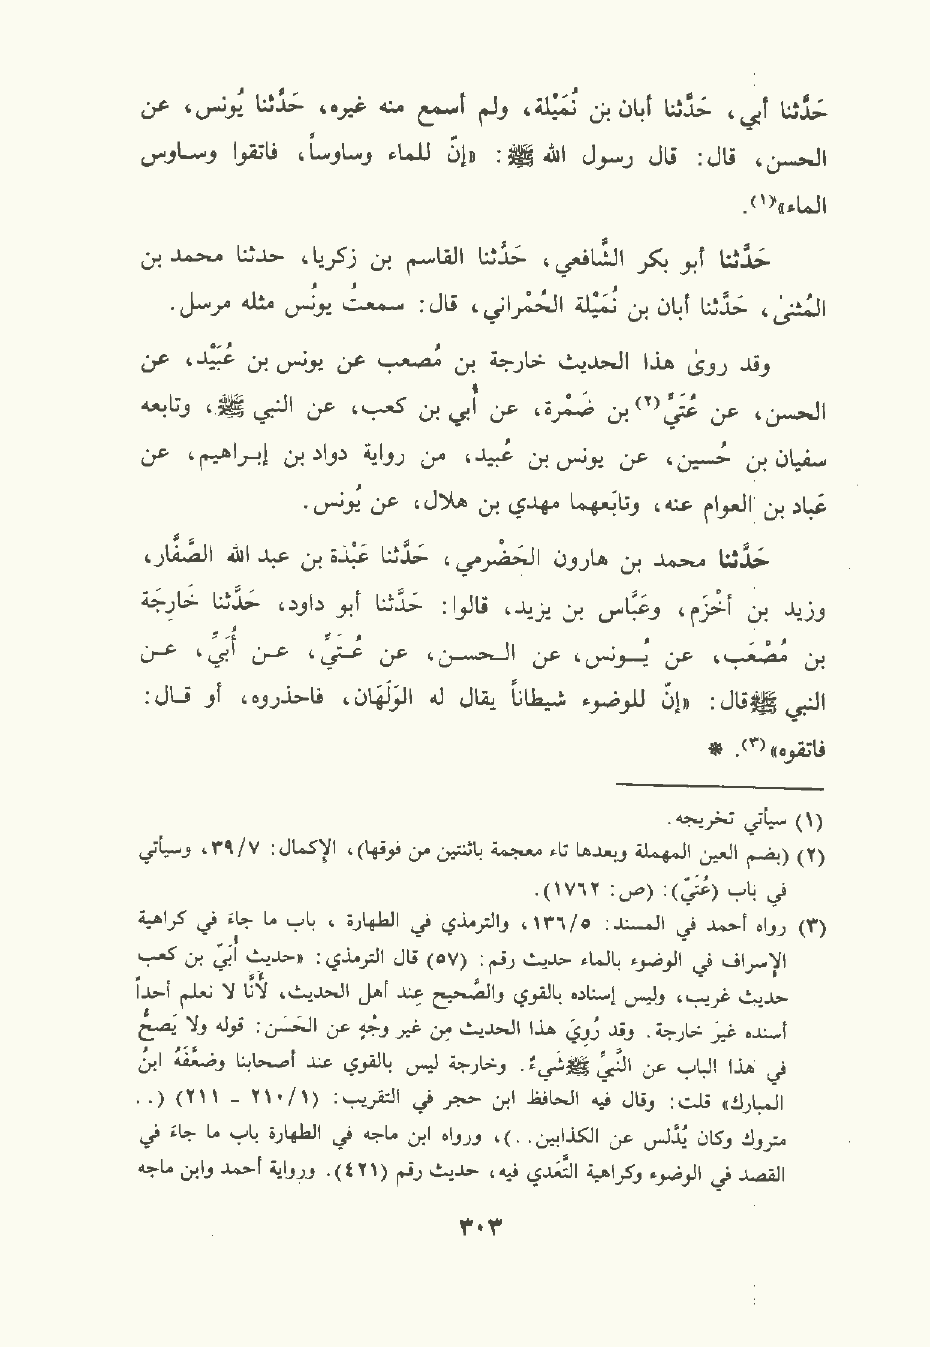 حَدَّثنا أبي، حَدَّثنا أبان بن نُمَيْلة، ولم أسمع منه غيره، حَدَّثنا يُونس، عن
الحسن، قال: قال رسول الله ﷺ: «إنّ للماء وسواساً، فاتقوا وسـاوس
الماء»(١).
حَدَّثنا أبو بكر الشَّافعي، حَدَّثنا القاسم بن زكريا، حدثنا محمد بن
المُثنىٰ، حَدَّثنا أبان بن نُمَيْلة الحُمْراني، قال: سمعتُ يُونُس مثله مرسل.
وقد روىٰ هذا الحديث خارجة بن مُصعب عن يونس بن عُبَيْد، عن
الحسن، عن عُتَيّ(٢) بن ضَمْرة، عن أُبي بن كعب، عن النبي ﷺ، وتابعه
سفيان بن حُسين، عن يُونس بن عُبيد، من رواية دواد بن إبـراهيم، عن
عَباد بن العوام عنه، وتابَعهما مهدي بن هلال، عن يُونس.
حَدَّثنا محمد بن هارون الحَضْرمي، حَدَّثنا عَبْدَة بن عبد الله الصَّفَّار،
وزيد بن أخْزَم، وعَبَّاس بن يزيد، قالوا: حَدَّثنا أبو داود، حَدَّثنا خَارِجَة
بن مُصْعَب، عن يُـونس، عن الـحسـن، عن عُـتَيّ، عـن أُبَيّ، عـن
النبي ﷺ قال: «إنّ للوضوء شيطاناً يقال له الوَلَهَان، فاحذروه، أو قـال:
فاتقوه»(٣). *
(١) سيأتي تخريجه.
(٢) (بضم العين المهملة وبعدها تاء معجمة باثنتين من فوقها)، الإكمال: ٣٩/٧، وسيأتي
في باب (عُتَيّ): (ص: ١٧٦٢).
(٣) رواه أحمد في المسند: ١٣٦/٥، والترمذي في الطهارة، باب ما جاءَ في كراهية
الإسراف في الوضوء بالماء حديث رقم: (٥٧) قال الترمذي: «حديث أُبَيّ بن كعب
حديث غريب، وليس إسناده بالقوي والصَّحيح عند أهل الحديث، لأنَّا لا نعلم أحداً
أسنده غيرَ خارجة. وقد رُوِيَ هذا الحديث مِن غير وجْهٍ عن الحَسَن: قوله ولا يَصحُّ
في هذا الباب عن النَّبيِّ ﷺ شَيءٌ. وخارجة ليس بالقوي عند أصحابنا وضعَّفَهُ ابنُ
المبارك» قلت: وقال فيه الحافظ ابن حجر في التقريب: (٢١٠/١ - ٢١١) (..
متروك وكان يُدَلِّس عن الكذابين..)، ورواه ابن ماجه في الطهارة باب ما جاءَ في
القصد في الوضوء وكراهية التَّعَدي فيه، حديث رقم (٤٢١). ورواية أحمد وابن ماجه
٣٠٣